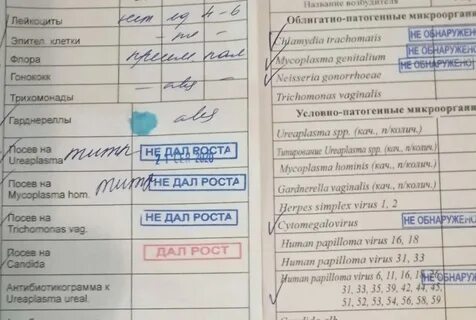 Лейкоциты нет ед 4-6
Эпител. клетки
Флора
Гонококк
Трихомонады
Гарднереллы
Посев на
Ureaplasma титр НЕ ДАЛ РОСТА
Посев на
Mycoplasma hom. титр НЕ ДАЛ РОСТА
Посев на
Trichomonas vag. НЕ ДАЛ РОСТА
Посев на
Candida ДАЛ РОСТ
Антибиотикограмма к
Ureaplasma ureal.
Название возбудителя
Облигатно-патогенные микроорган
Chlamydia trachomatis НЕ ОБНАРУЖЕ
Mycoplasma genitalium НЕ ОБНАРУЖЕНО
Neisseria gonorrhoeae НЕ ОБНАРУЖЕНО
Trichomonas vaginalis
Условно-патогенные микроорган
Ureaplasma spp. (кач., п/колич.)
Типирование Ureaplasma spp. (кач., п/колич.)
Mycoplasma hominis (кач., п/колич.)
Gardnerella vaginalis (кач., п/колич.)
Herpes simplex virus 1, 2
Cytomegalovirus НЕ ОБНАРУЖЕ
Human papilloma virus 16, 18
Human papilloma virus 31, 33
Human papilloma virus 6, 11, 16, 18, НЕ ОБНАРУЖ
31, 33, 35, 39, 42, 44, 45,
51, 52, 53, 54, 56, 58, 59